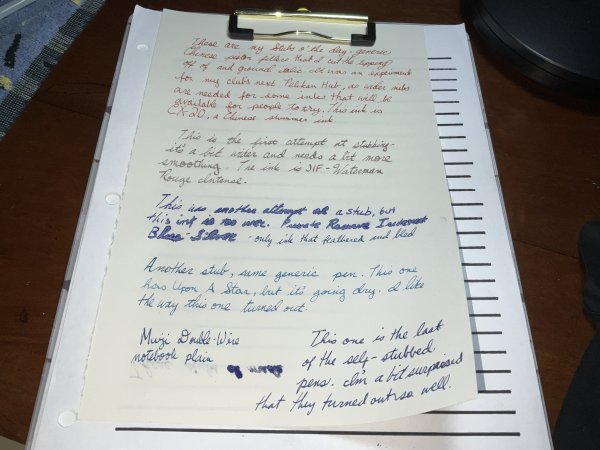 These are my Stubs o' the day - generic
Chinese pen fillers that I cut the tipping
off of and ground down. It was an experiment
for my club's next Pelikan Hub, as wider nibs
are needed for some inks that will be
available for people to try. This ink is
CX-20, a Chinese shimmer ink
This is the first attempt at stubbing -
it's a bit wider and needs a bit more
smoothing. The ink is JIF-Waterman
Rouge Intense.
This was another attempt at a stub, but
this ink is too wet. Private Reserve
Blue - only ink that feathered and bled
Another stub, same generic pen. This one
has Upon A Star, but it's going dry. I like
the way this one turned out.
Muji Double-Wire
notebook plain
This one is the last
of the self-stubbed
pens. I'm a bit surprised
that they turned out so well.